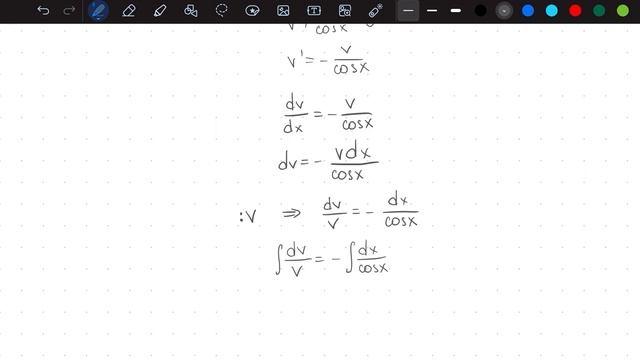 v' = - v/cosx
dv/dx = - v/cosx
dv = - vdx/cosx
:v ⇒ dv/v = - dx/cosx
∫ dv/v = - ∫ dx/cosx